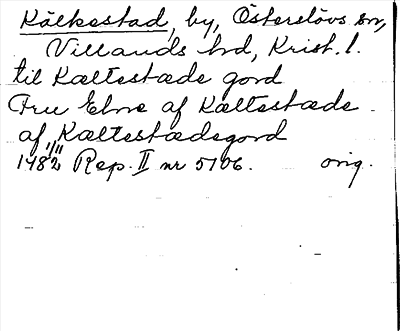 Kälkestad, by, Österslövs sn,
Villands hd, Krist. l.
til Kæltestæde gord
Fru Elne af Kæltestæde
af Kæltestædegord
1482 1/11 Rep. II nr 5106. orig.